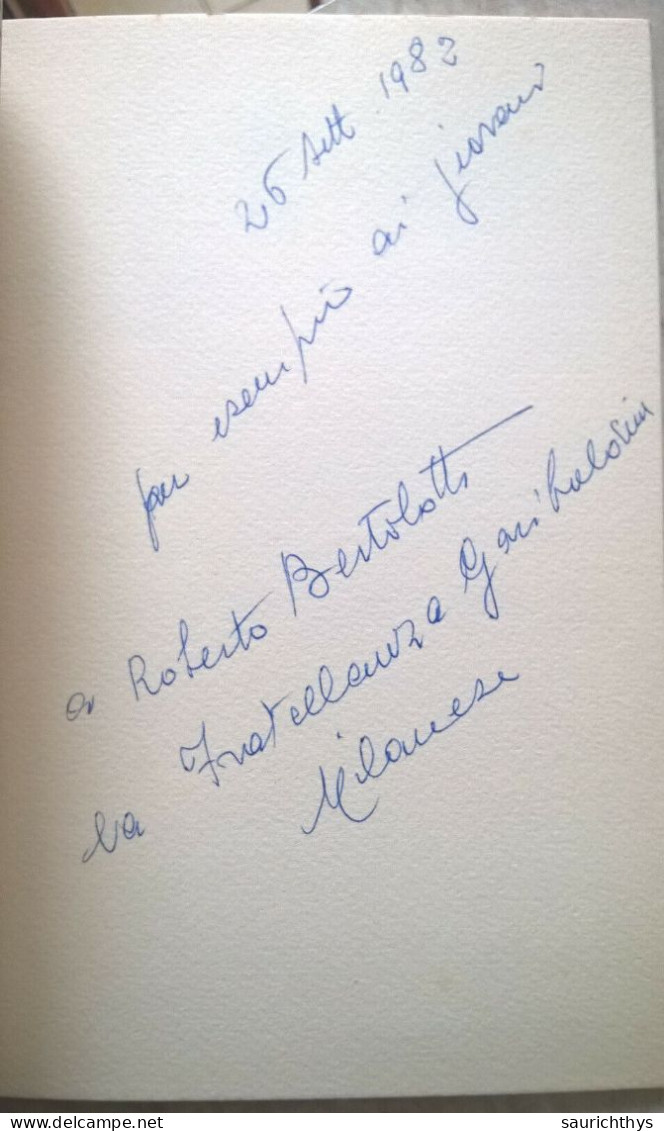 26 Sett. 1982
per esempio ai giovani
a Roberto Bertolotti
la Fratellanza Garibaldina
Milanese
saurichthys